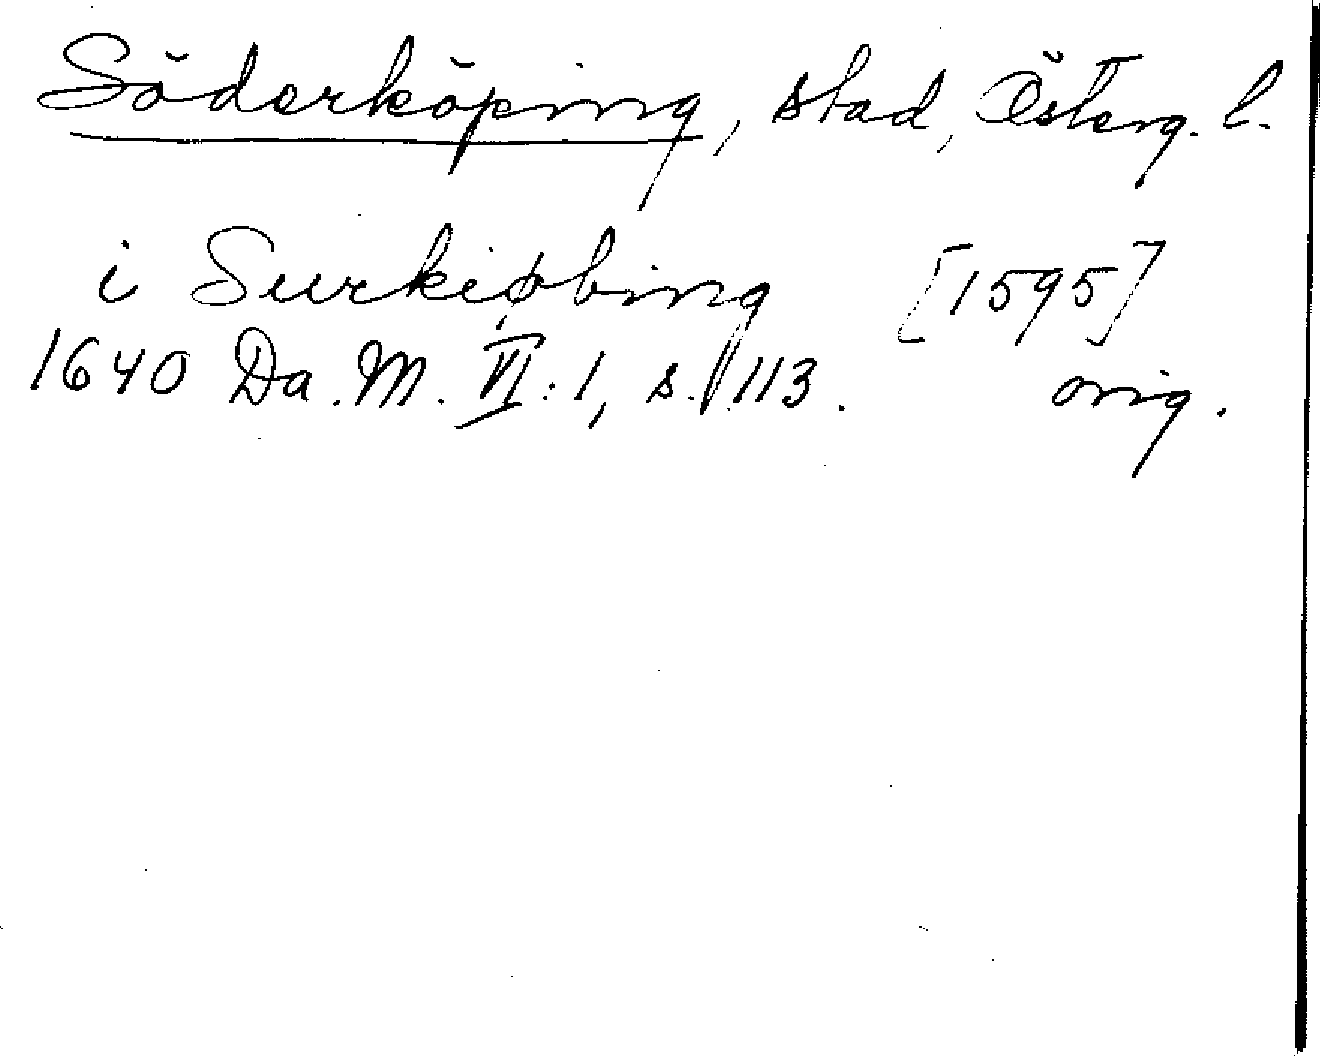 Söderköping, stad, Österg. l.
i Surkiøbing [1595]
1640 Da. M. VI: 1, s. 113. orig.